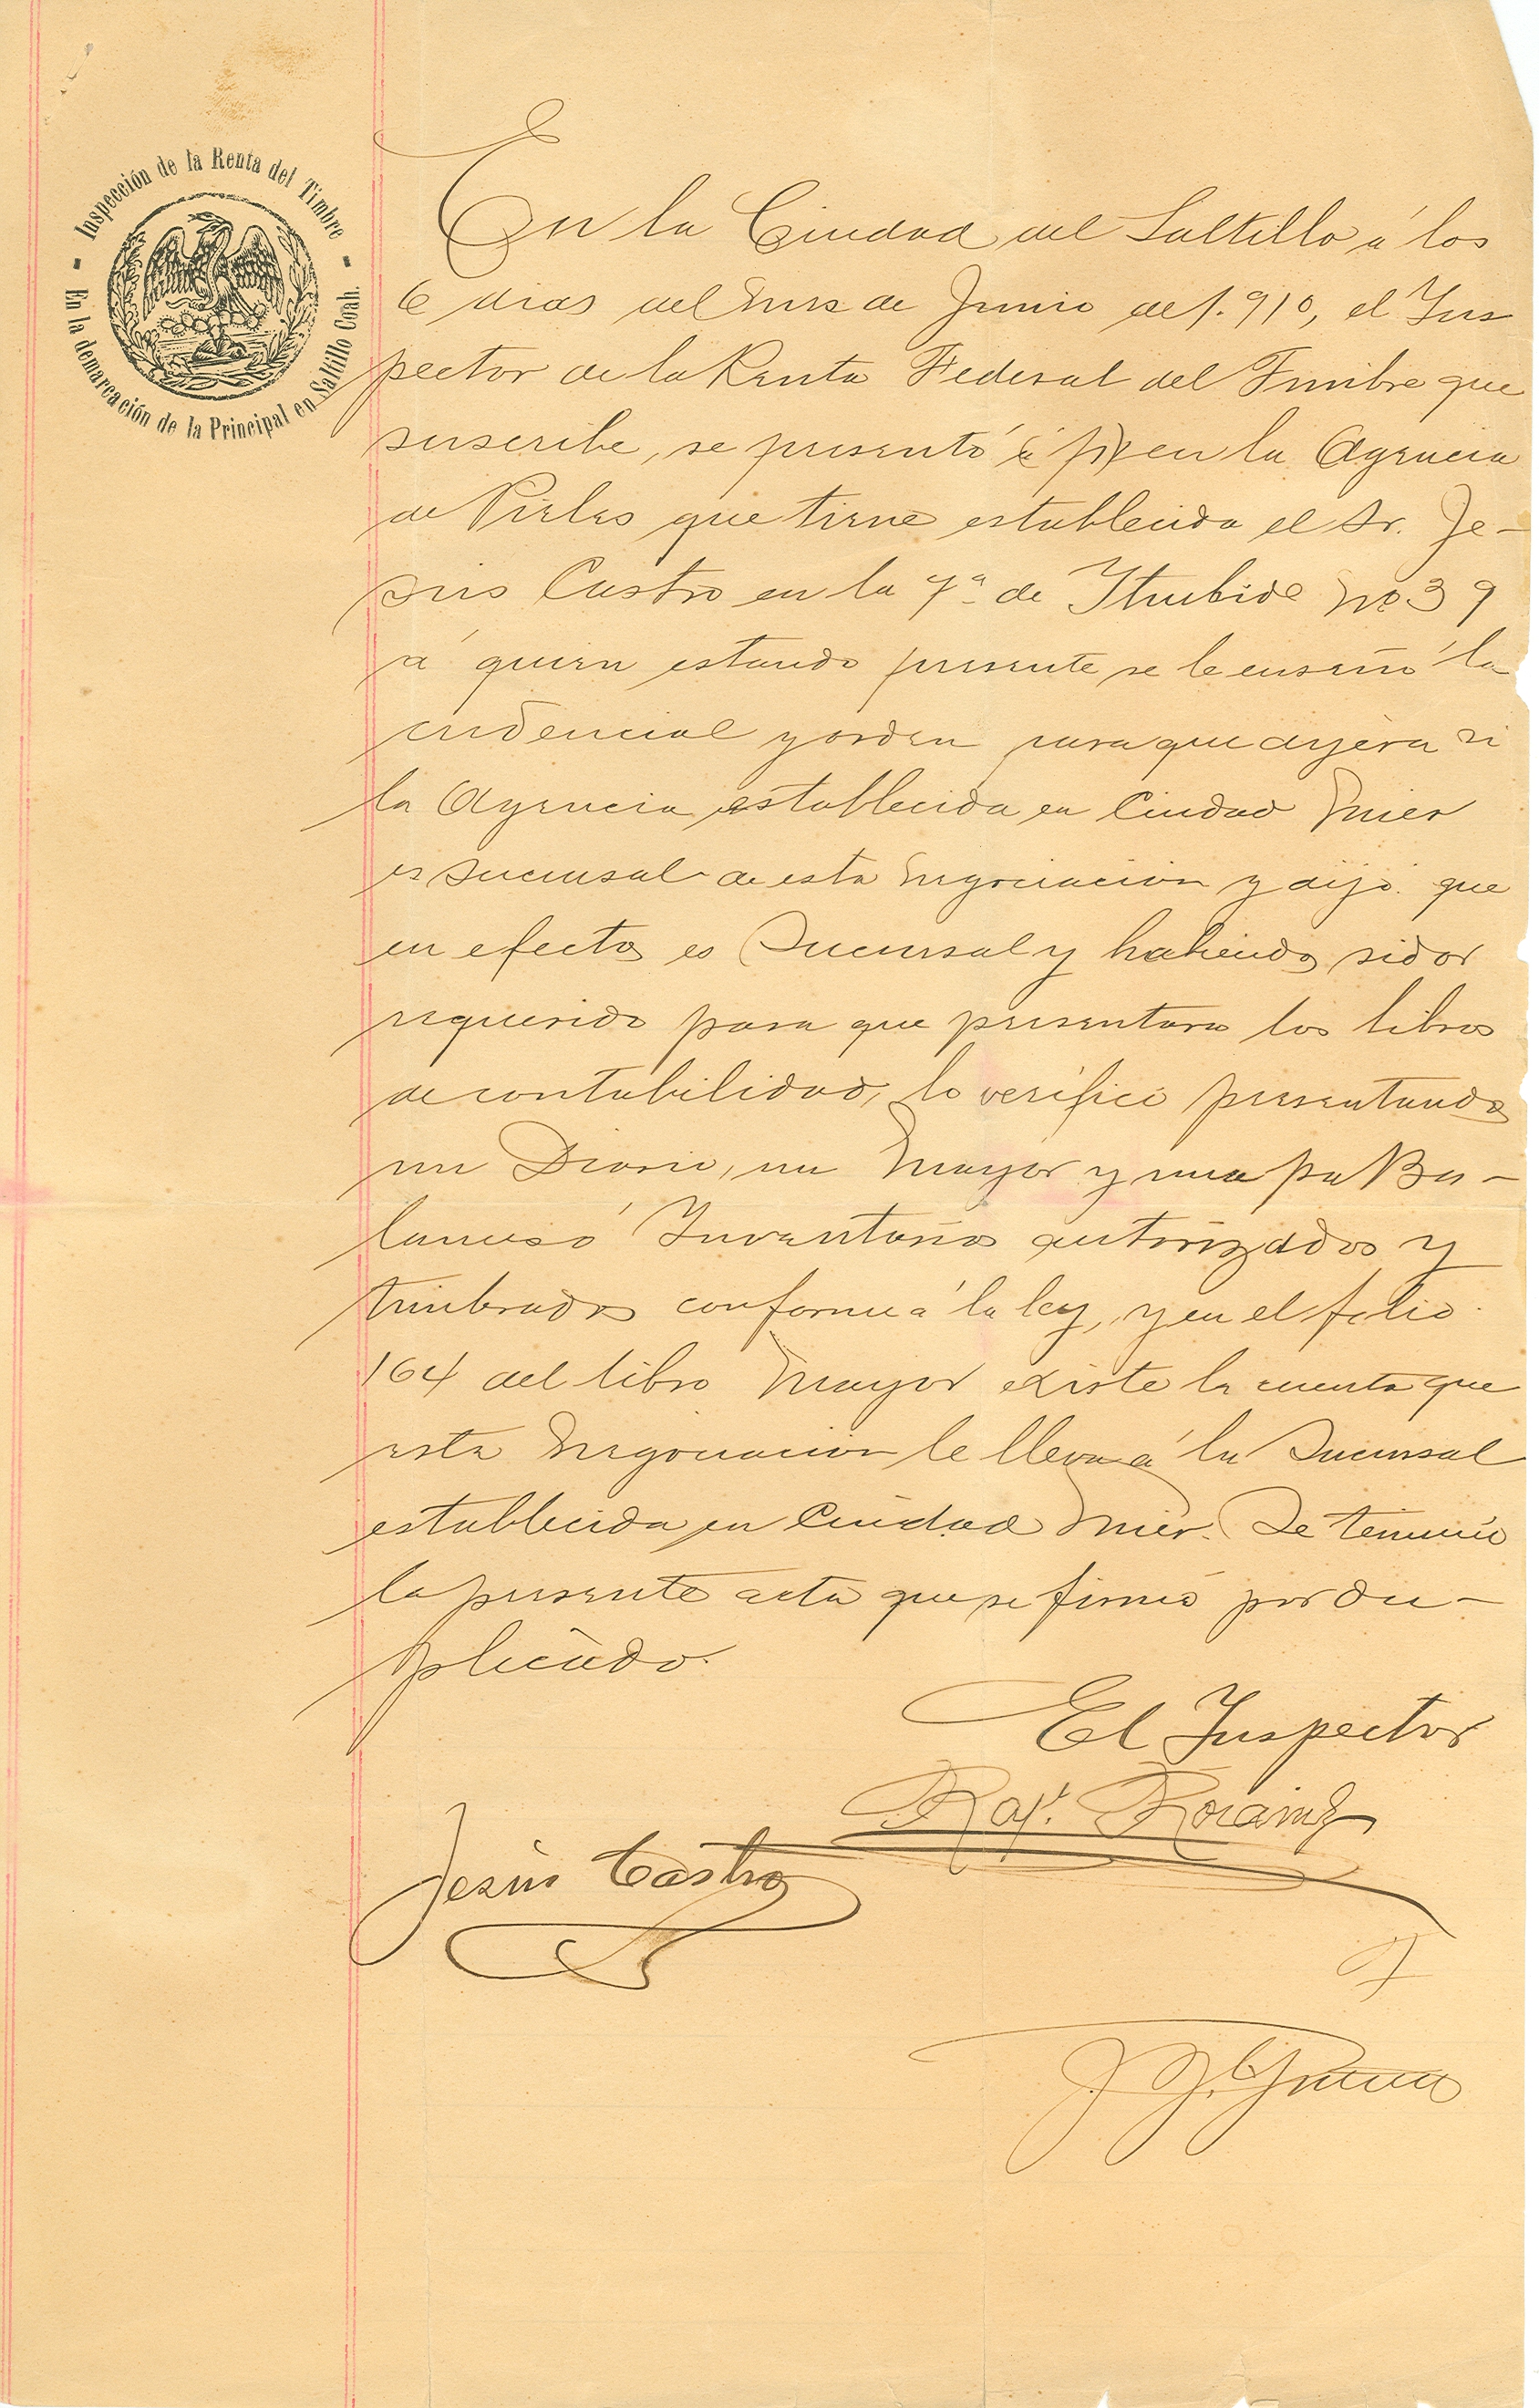 Inspección de la Renta del Timbre
En la demarcación de la Principal en Saltillo Coah.
En la Ciudad del Saltillo á los
6 dias del mes de Junio de 1.910, el Ins
pector de la Renta Federal del Timbre que
suscribe, se presentó en la Agencia
de Pieles que tiene establecida el Sr. Je-
sús Castro en la 7ª de Iturbide No 39
á quien estando presente se le enseñó la
credencial y orden para que dijera si
la Agencia establecida en Ciudad Mier
es sucursal de esta negociacion y dijo que
en efecto es Sucursal y habiendo sido
requerido para que presentara los libros
de contabilidad, lo verificó presentando
un Diario, un Mayor y uno pa Ba-
lances ó Inventarios autorizados y
timbrados conforme á la ley, y en el folio
164 del libro Mayor existe la cuenta que
esta Negociacion le lleva á la Sucursal
establecida en Ciudad Mier. Se terminó
la presente acta que se firmó por du-
plicado.
El Inspector
Raf.
Jesús Castro